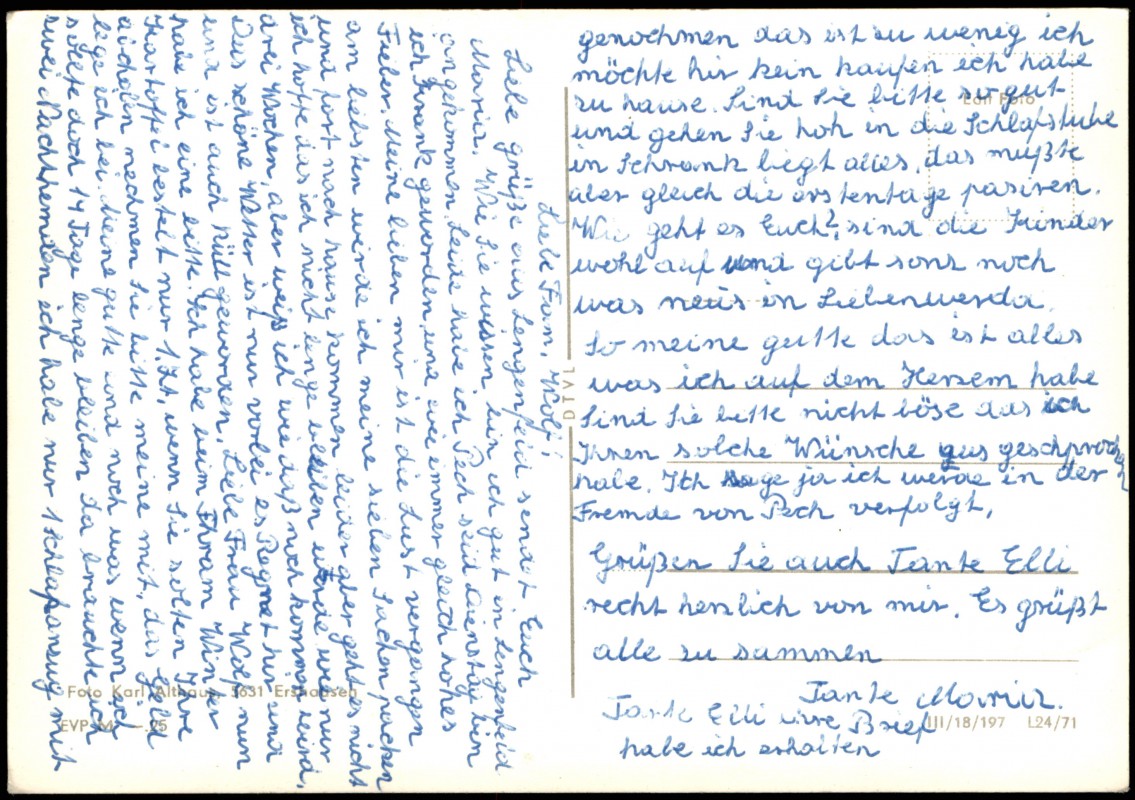 Liebe Fam. Wolf;
Liebe grüße aus Lengenfeld sendet Euch
Moriz. Wie Sie wissen bin ich gut in Lengenfeld
angekommen. Leide habe ich Pech seid Dienstag bin
ich Krank geworden, und wie immer gleich hohes
Fieber. Meine lieben mir ist die Lust vergangen
am liebsten würde ich meine sieben Sachen packen
und fort nach hause kommen leider aber geht es nicht
ich hoffe das ich nicht lenge
drei Wochen, aber weiß ich wie daß noch kommen wird,
Das schöne Wetter ist nur vorbei es Regnet hir und
und ist auch küll geworden. Liebe Frau Wolf nun
habe ich eine bitte. Ich habe beim Winter
Kartoffel bestelt nur 1. Zt, wenn Sie solten Ihre
nechmen Sie bitte meine mit, das Geld
lege ich bei. Meine gutte und noch was wenn ich
solte doch 14 Tage lenge bleiben da brauchte ich
zwei Nachthemden ich habe nur 1 schlafanzug mit
genochmen das ist zu wenig ich
möchte hir kein kaufen ich habe
zu hause. Sind Sie bitte so gut
und gehen Sie hoh in die Schlafstube
in Schrank liegt alles, das müßte
aber gleich die erstentage pasiren.
Wie geht es Euch?, sind die Kinder
wohl auf und gibt sons noch
was neüs in Liebenwerda.
So meine gutte das ist alles
was ich auf dem Herzem habe
Sind Sie bitte nicht böse das ich
Ihnen solche Wünsche aus geschprochen
habe. Ich sage ja ich werde in der
Fremde von Pech verfolgt.
Grüßen Sie auch Tante Elli
recht herzlich von mir. Es grüßt
alle zu sammen
Tante Moriz.
Tante Elli ihre Brief
habe ich erhalten
DTVL
Foto Karl Althaus, 5631 Ershausen
EVP M —.25
III/18/197 L24/71